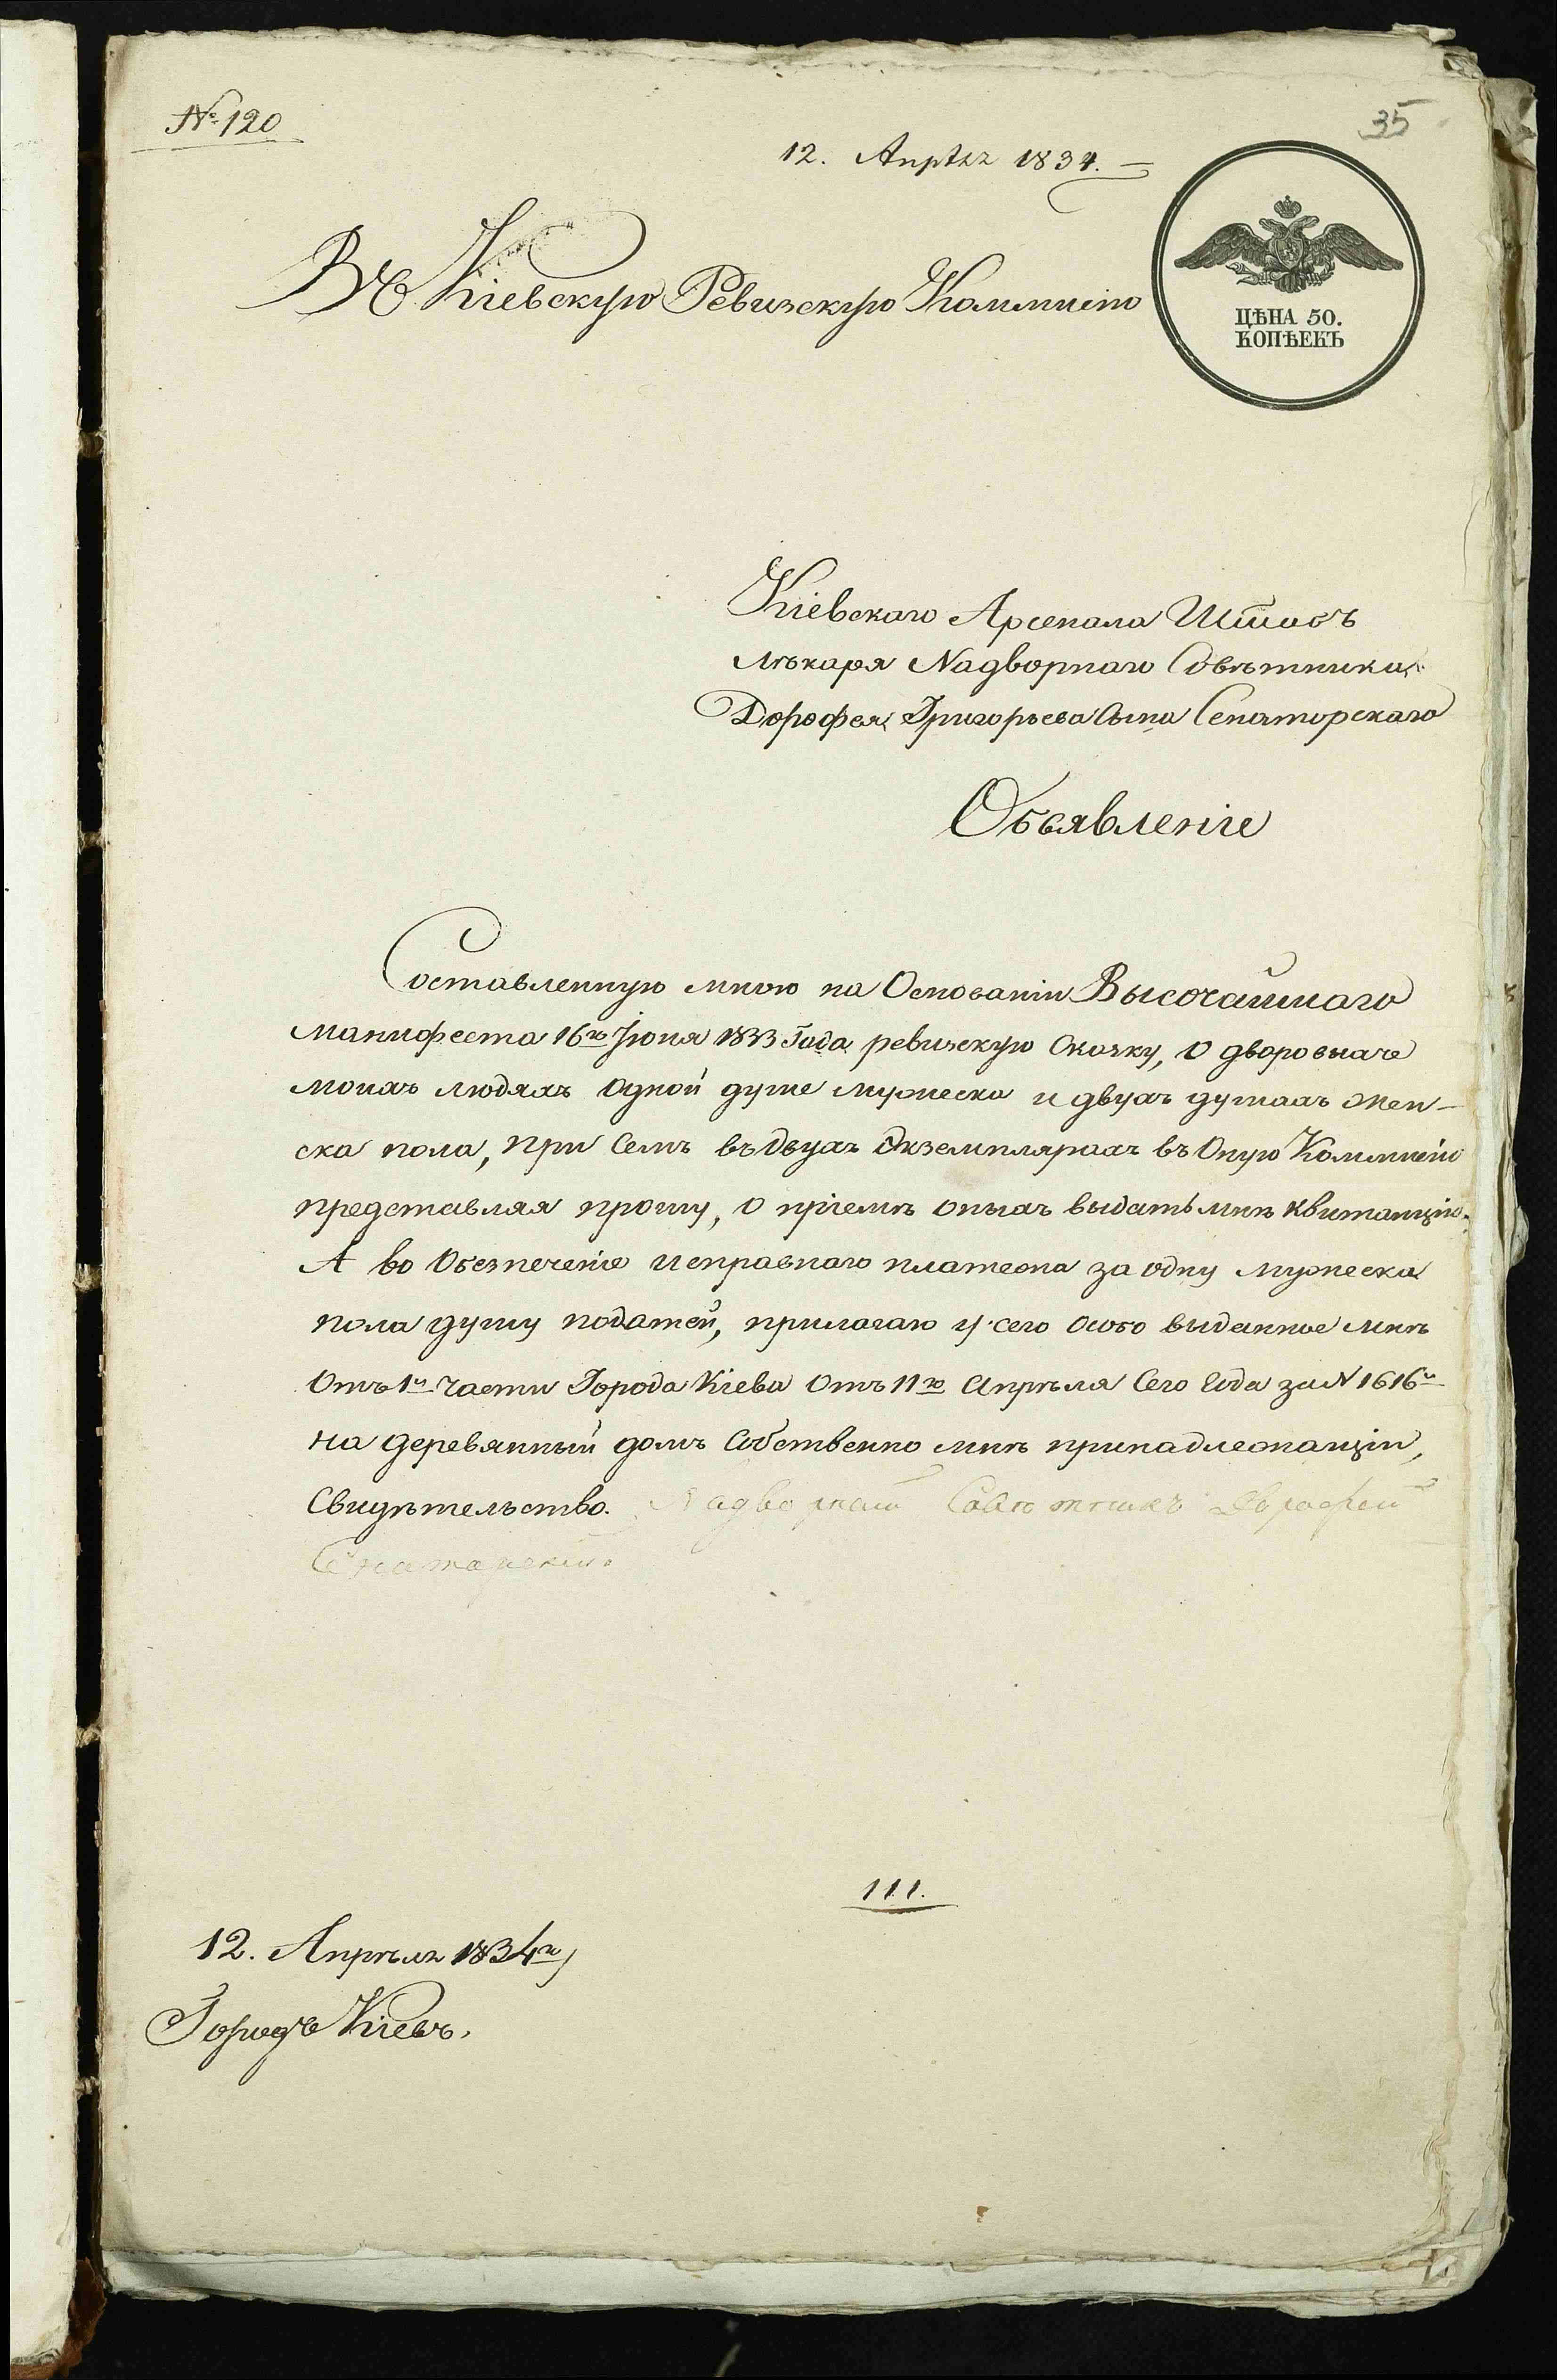 № 120
35
12. Апрѣля 1834.
Въ Кіевскую Ревизскую Коммисію
ЦѢНА 50.
КОПѢЕКЪ
Кіевскаго Арсенала Штабъ
лѣкаря Надворнаго Совѣтника
Дорофея Григорьева Сына Сенаторскаго
Объявленіе
Составленную мною на Основаніи Высочайшаго
манифеста 16го Іюня 1833 Года ревизскую Сказку, О дворовыхъ
моихъ людяхъ Одной душе мужеска и двухъ душахъ жен-
ска пола, при Семъ въ двухъ Экземплярахъ въ Оную Коммисію
представляя прошу, О пріемѣ оныхъ выдать мнѣ квитанцію.
А во Обезпеченіе исправнаго платежа за одну мужеска
пола душу податей, прилагаю у сего Особо выданное мнѣ
Отъ 1й части Города Кіева Отъ 11го Апрѣля Сего Года за N 1616м
на деревянный домъ Собственно мнѣ принадлежащій,
Свидѣтельство. Надворный Совѣтникъ Дорофей
Сенаторскій.
111.
12. Апрѣля 1834го
Городъ Кіевъ.